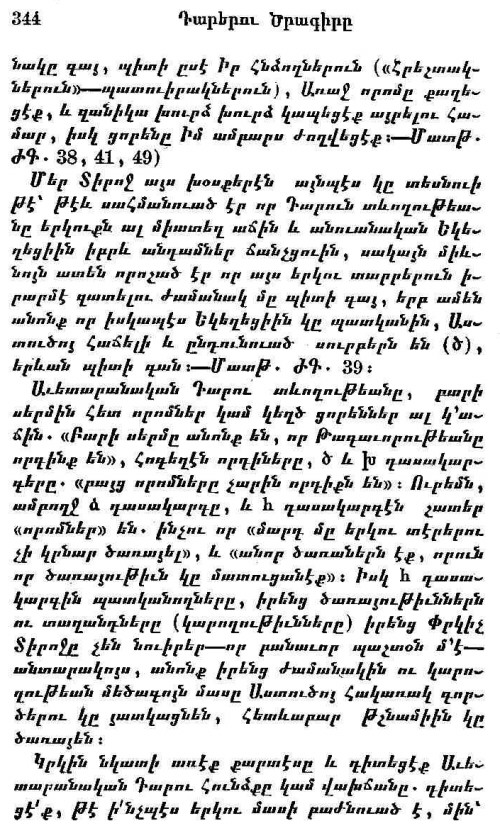 344 Դարերու Ծրագիրը
նակը գայ, պիտի ըսէ Իր Հնձողներուն («Հրեշտակ-
ներուն»—պատուիրակներուն), Առաջ որոմը քաղե-
ցէք, և զանիկա խուրձ խուրձ կապեցէք այրելու հա-
մար, իսկ ցորենը Իմ ամբարս ժողվեցէք։—Մատթ.
ԺԳ. 38, 41, 49)
Մեր Տիրոջ այս խօսքերէն այնպէս կը տեսնուի
թէ՝ թէև սահմանուած էր որ Դարուն տևողութեա-
նը երկուքն ալ միատեղ աճին և անուանական Եկե-
ղեցիին իբրև անդամներ ճանչցուին, սակայն միև-
նոյն ատեն որոշած էր որ այս երկու տարրերուն ի-
րարմէ զատելու ժամանակ մը պիտի գայ, երբ ամեն
անոնք որ իսկապէս Եկեղեցիին կը պատկանին, Աս-
տուծոյ հաճելի և ընդունուած սուրբերն են (ծ),
երևան պիտի գան։—Մատթ. ԺԳ. 39։
Աւետարանական Դարու տևողութեանը, բարի
սերմին հետ որոմներ կամ կեղծ ցորեններ ալ կ'ա-
ճին. «Բարի սերմը անոնք են, որ Թագաւորութեանը
որդինք են», Հոգեղէն որդիները, ծ և խ դասակար-
գերը. «բայց որոմները չարին որդիքն են»։ Ուրեմն,
ամբողջ ձ դասակարգը, և հ դասակարգէն շատեր
«որոմներ» են. ինչու որ «մարդ մը երկու տէրերու
չի կրնար ծառայել», և «անոր ծառաներն էք, որուն
որ ծառայութիւն կը մատուցանէք»։ Իսկ հ դասա-
կարգին պատկանողները, իրենց ծառայութիւններն
ու տաղանդները (կարողութիւնները) իրենց Փրկիչ
Տիրոջը չեն նուիրեր—որ բանաւոր պաշտօն մ'է—
անտարակոյս, անոնք իրենց ժամանակին ու կարո-
ղութեան մեծագոյն մասը Աստուծոյ հակառակ գոր-
ծերու կը յատկացնեն, հետևաբար թշնամիին կը
ծառայեն։
Կրկին նկատի առէք քարտէսը և դիտեցէք Աւե-
տարանական Դարու Հունձքը կամ վախճանը. դիտե-
ցէ՛ք, թէ ի՛նչպէս երկու մասի բաժնուած է, մին՝